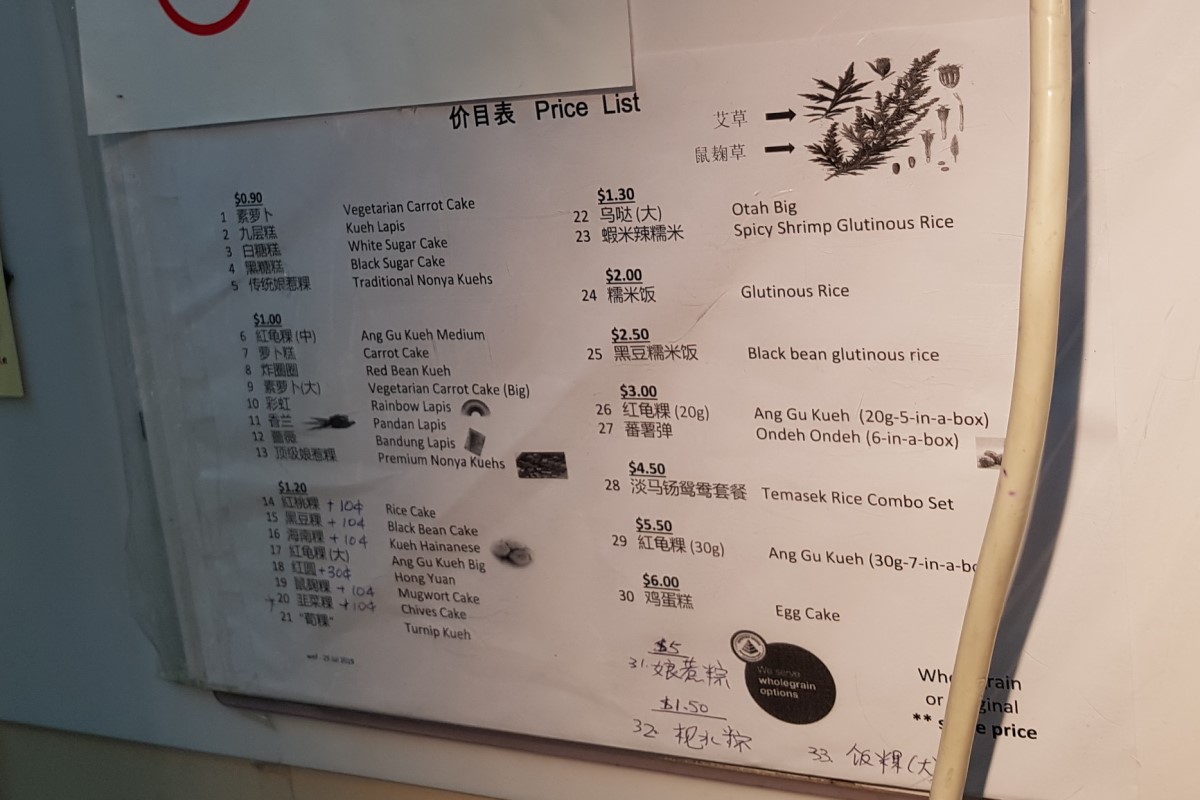 价目表 Price List
艾草
鼠麹草
$0.90
1 素萝卜 Vegetarian Carrot Cake
2 九层糕 Kueh Lapis
3 白糖糕 White Sugar Cake
4 黑糖糕 Black Sugar Cake
5 传统娘惹粿 Traditional Nonya Kuehs
$1.00
6 紅龟粿 (中) Ang Gu Kueh Medium
7 萝卜糕 Carrot Cake
8 炸圈圈 Red Bean Kueh
9 素萝卜(大) Vegetarian Carrot Cake (Big)
10 彩虹 Rainbow Lapis
11 香兰 Pandan Lapis
12 薔薇 Bandung Lapis
13 顶级娘惹粿 Premium Nonya Kuehs
$1.20
14 紅桃粿 + 10¢ Rice Cake
15 黑豆粿 + 10¢ Black Bean Cake
16 海南粿 + 10¢ Kueh Hainanese
17 紅龟粿 (大) Ang Gu Kueh Big
18 紅圆 +30¢ Hong Yuan
19 鼠麹粿 + 10¢ Mugwort Cake
20 韭菜粿 + 10¢ Chives Cake
21 "荀粿" Turnip Kueh
wef : 29 Jul 2019
$1.30
22 乌哒 (大) Otah Big
23 蝦米辣糯米 Spicy Shrimp Glutinous Rice
$2.00
24 糯米饭 Glutinous Rice
$2.50
25 黑豆糯米饭 Black bean glutinous rice
$3.00
26 紅龟粿 (20g) Ang Gu Kueh (20g-5-in-a-box)
27 蕃薯弹 Ondeh Ondeh (6-in-a-box)
$4.50
28 淡马锡鸳鸯套餐 Temasek Rice Combo Set
$5.50
29 紅龟粿 (30g) Ang Gu Kueh (30g-7-in-a-bo
$6.00
30 鸡蛋糕 Egg Cake
$5
31. 娘惹粽
$1.50
32. 枧水粽
33. 饭粿(大
We serve
wholegrain
options
or
** price